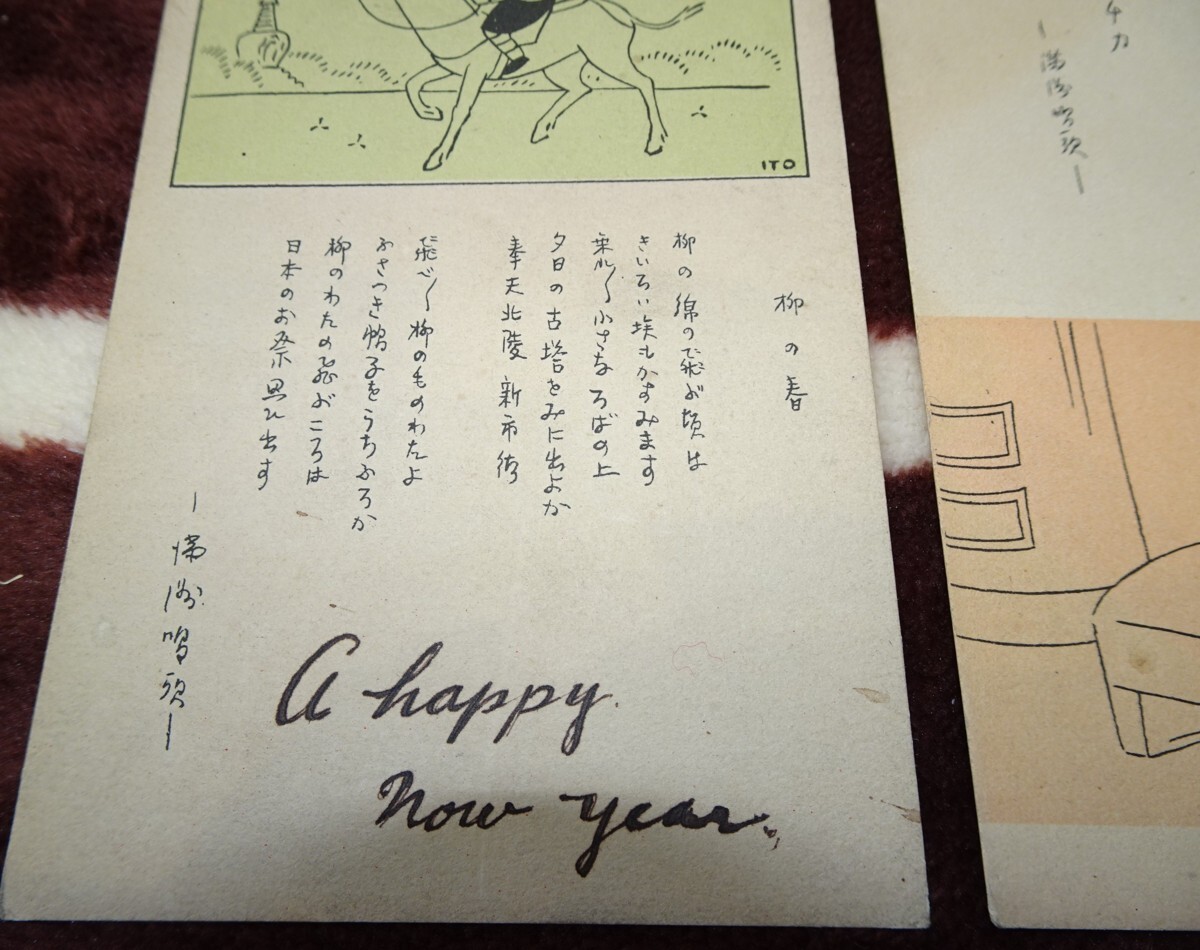 ITO
柳の春
柳の綿の飛ぶ頃は
きいろい埃もかすみます
乗れ〳〵小さなろばの上
夕日の古塔をみに出よか
奉天北陵新市街
飛べ〳〵柳のものわたよ
ふさつき帽子をうちふろか
柳のわたの飛ぶころは
日本のお祭思ひ出す
―満洲
A happy
New year.
チカ
―満洲